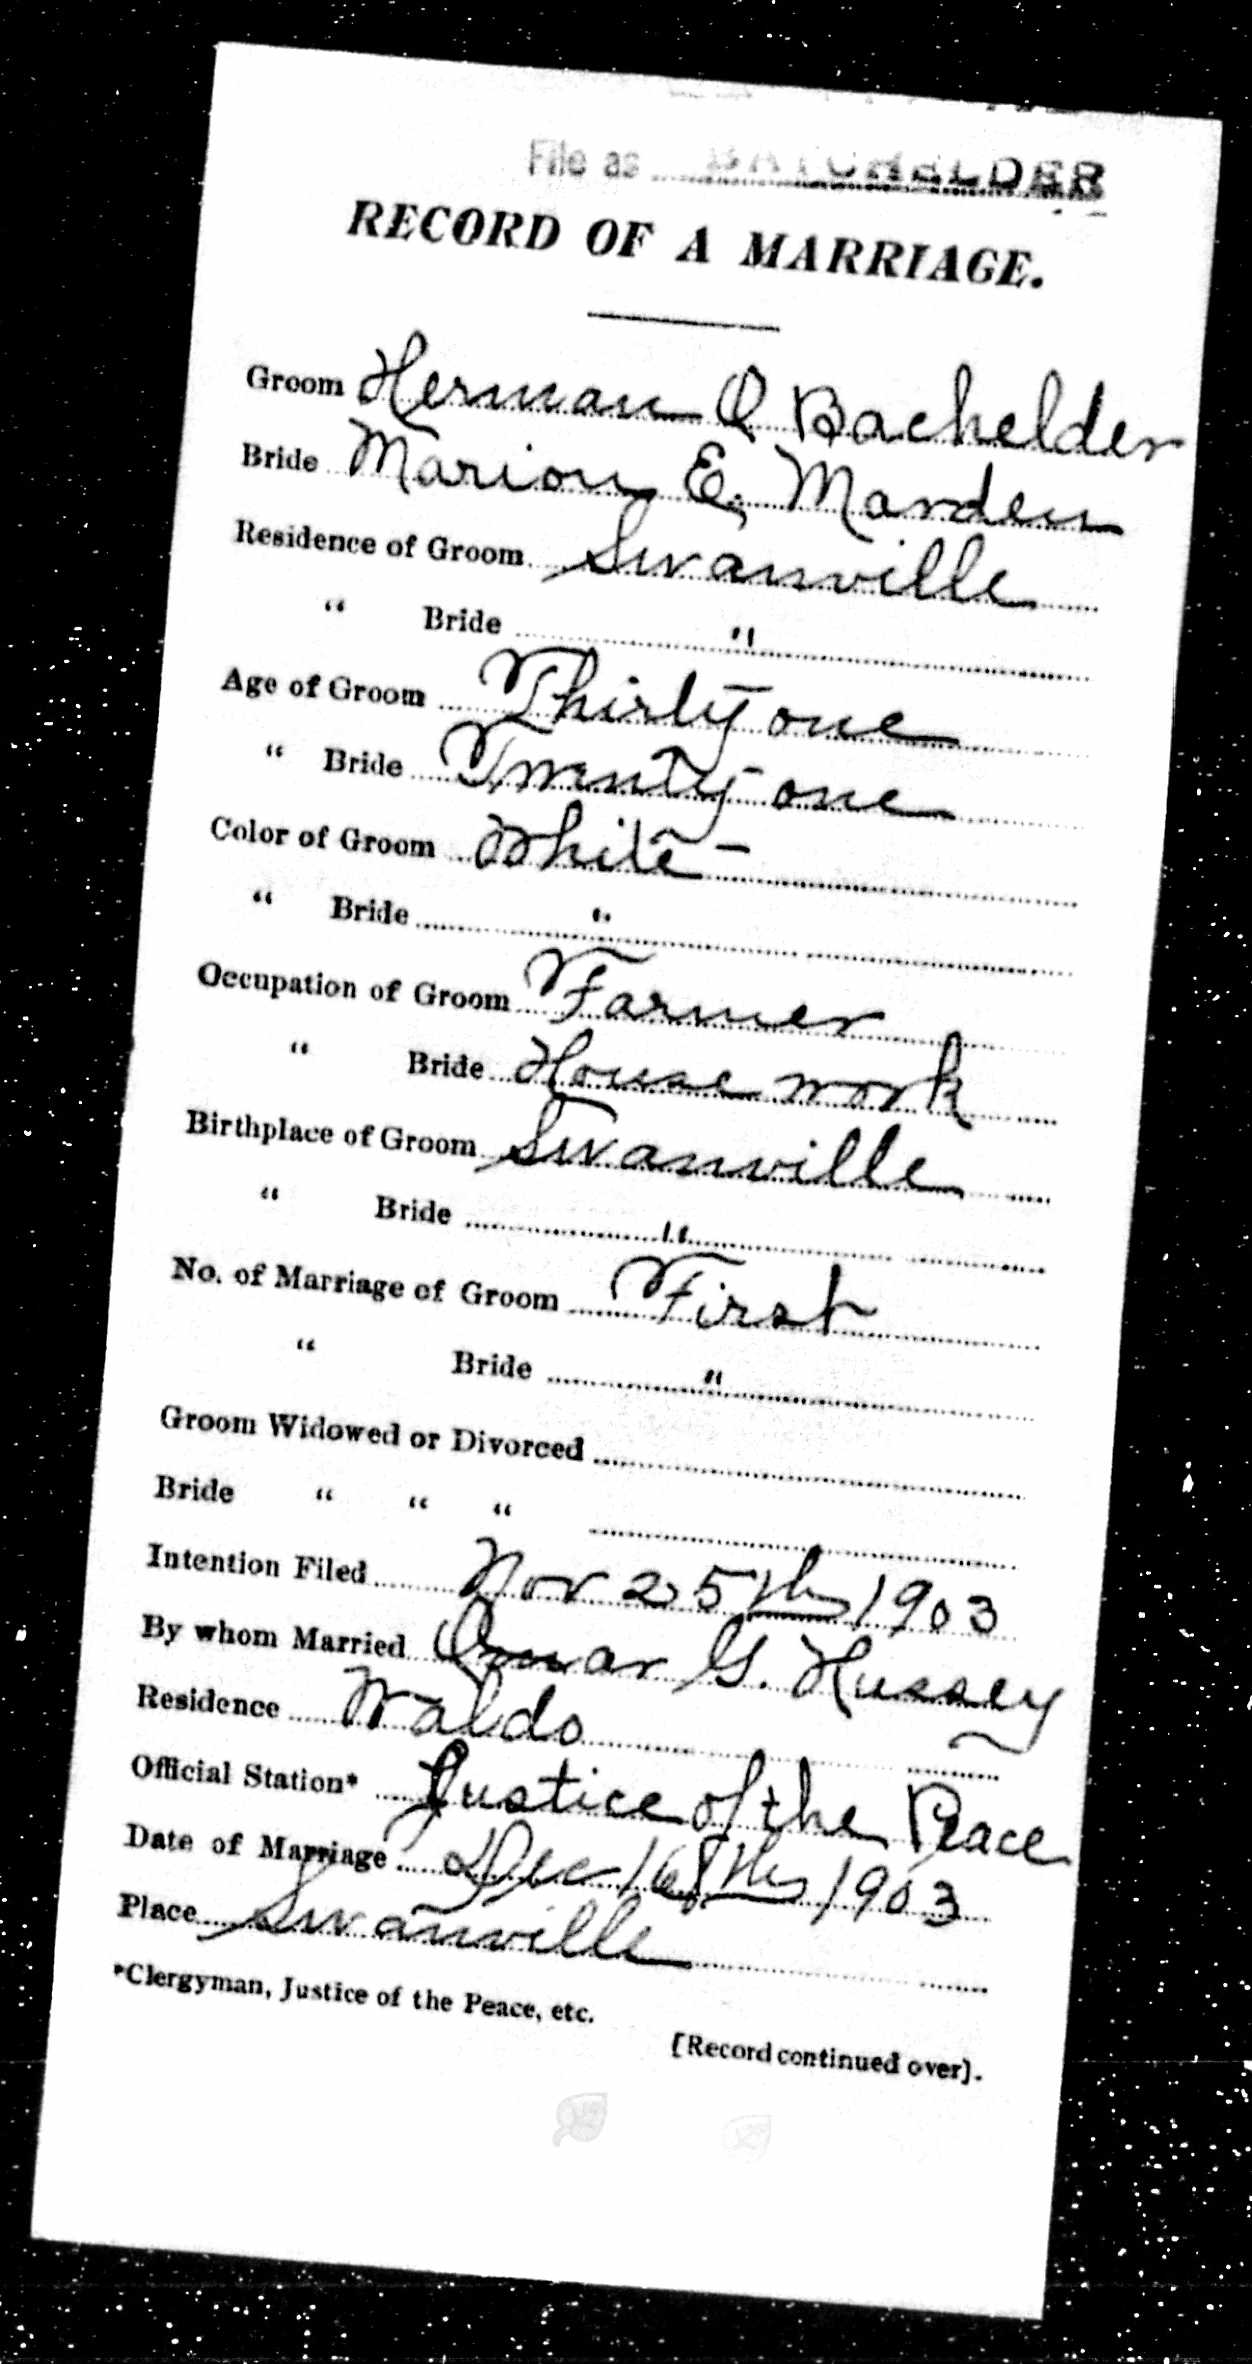 File as BATCHELDER
RECORD OF A MARRIAGE.
Groom Herman O Bachelder
Bride Marion E. Marden
Residence of Groom Swanville
" Bride "
Age of Groom Thirty one
" Bride Twenty one
Color of Groom White
" Bride "
Occupation of Groom Farmer
" Bride House work
Birthplace of Groom Swanville
" Bride "
No. of Marriage of Groom First
" Bride "
Groom Widowed or Divorced
Bride " " "
Intention Filed Nov 25th 1903
By whom Married Omar G. Hussey
Residence Waldo
Official Station* Justice of the Peace
Date of Marriage Dec 1903
Place Swanville
*Clergyman, Justice of the Peace, etc.
[Record continued over].